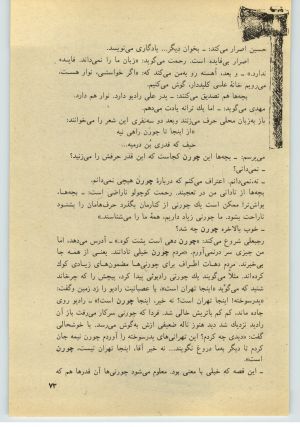 حسین اصرار می‌کند: ـ بخوان دیگر... یادگاری می‌نویسد.
اصرار بی‌فایده است. رحمت می‌گوید: «زبان ما را نمی‌داند. فایده
ندارد.» ـ و بعد، آهسته رو به من می‌کند که: «اگر خواستی، نوار هست،
می‌رویم خانهٔ علی کلیددار، گوش می‌کنیم.
بچه‌ها هم تصدیق می‌کنند: ـ پدر علی رادیو دارد. نوار هم دارد.
مهدی می‌گوید: ـ اما یك ترانه یادت می‌دهم.
باز به زبان محلی حرف می‌زنند وبعد دو سه‌نفری این شعر را می‌خوانند:
«از اینجا تا چورن راهی نیه
حیف که قدری بن درمیه...
می‌پرسم: ـ بچه‌ها این چورن کجاست که این قدر حرفش را می‌زنید؟
ـ نمی‌دانی؟
ـ نه،نمی‌دانم. اعتراف می‌کنم که دربارهٔ چورن هیچی نمی‌دانم.
بچه‌ها از نادانی من در تعجبند. رحمت کوچولو ناراضی است: ـ بچه‌ها،
یواش‌تر! ممکن است یك چورنی از کنارمان بگذرد حرفهامان را بشنود
ناراحت بشود. ما چورنی زیاد داریم، همهٔ ما را می‌شناسند.»
ـ خوب بالاخره چورن چه شد؟
رجبعلی شروع می‌کند: «چورن دهی است پشت کوه.» ـ آدرس می‌دهد، اما
من چیزی سر درنمی‌آورم. مردم چورن خیلی نادانند. یعنی از همه جا
بی‌خبرند. مردم دهات اطراف برای چورنی‌ها مضمون‌های زیادی کوك
کرده‌اند. مثلا می‌گویند یك چورنی رادیوئی پیدا کرد، پیچش را که چرخاند
شنید که می‌گوید «اینجا تهران است». با عصبانیت رادیو را زد زمین وگفت:
«پدرسوخته! اینجا تهران است؟ نه خیر، اینجا چورن است!» ـ رادیو روی
جاده ماند، کم کم باتریش خالی شد. فردا که چورنی سرکار می‌رفت باز آن
رادیو نزدیك شد دید هنوز ناله ضعیفی ازش به‌گوش می‌رسد. با خوشحالی
گفت: «دیدی چه کردم؟ این تهرانی‌های پدرسوخته را آوردن چورن نیمه جان
کردم تا دیگر به‌ما دروغ نگویند... نه خیر آقا، اینجا تهران نیست، چورن
است».
ـ این قصه که خیلی با معنی بود. معلوم می‌شود چورنی‌ها آن قدرها هم که
۷۳